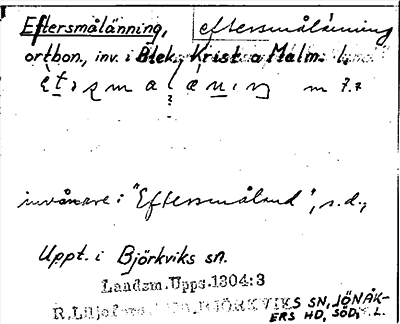 Eftersmålänning, eftersmålänning
ortbon, inv. i Blek, Krist o Malm. l.
m
invånare i "Eftersmåland", s.d.,
Uppt. i Björkviks sn.
Landsm. Upps. 1304:3
BJÖRKVIKS SN, JÖNÅK-
ERS HD, SÖD, L.